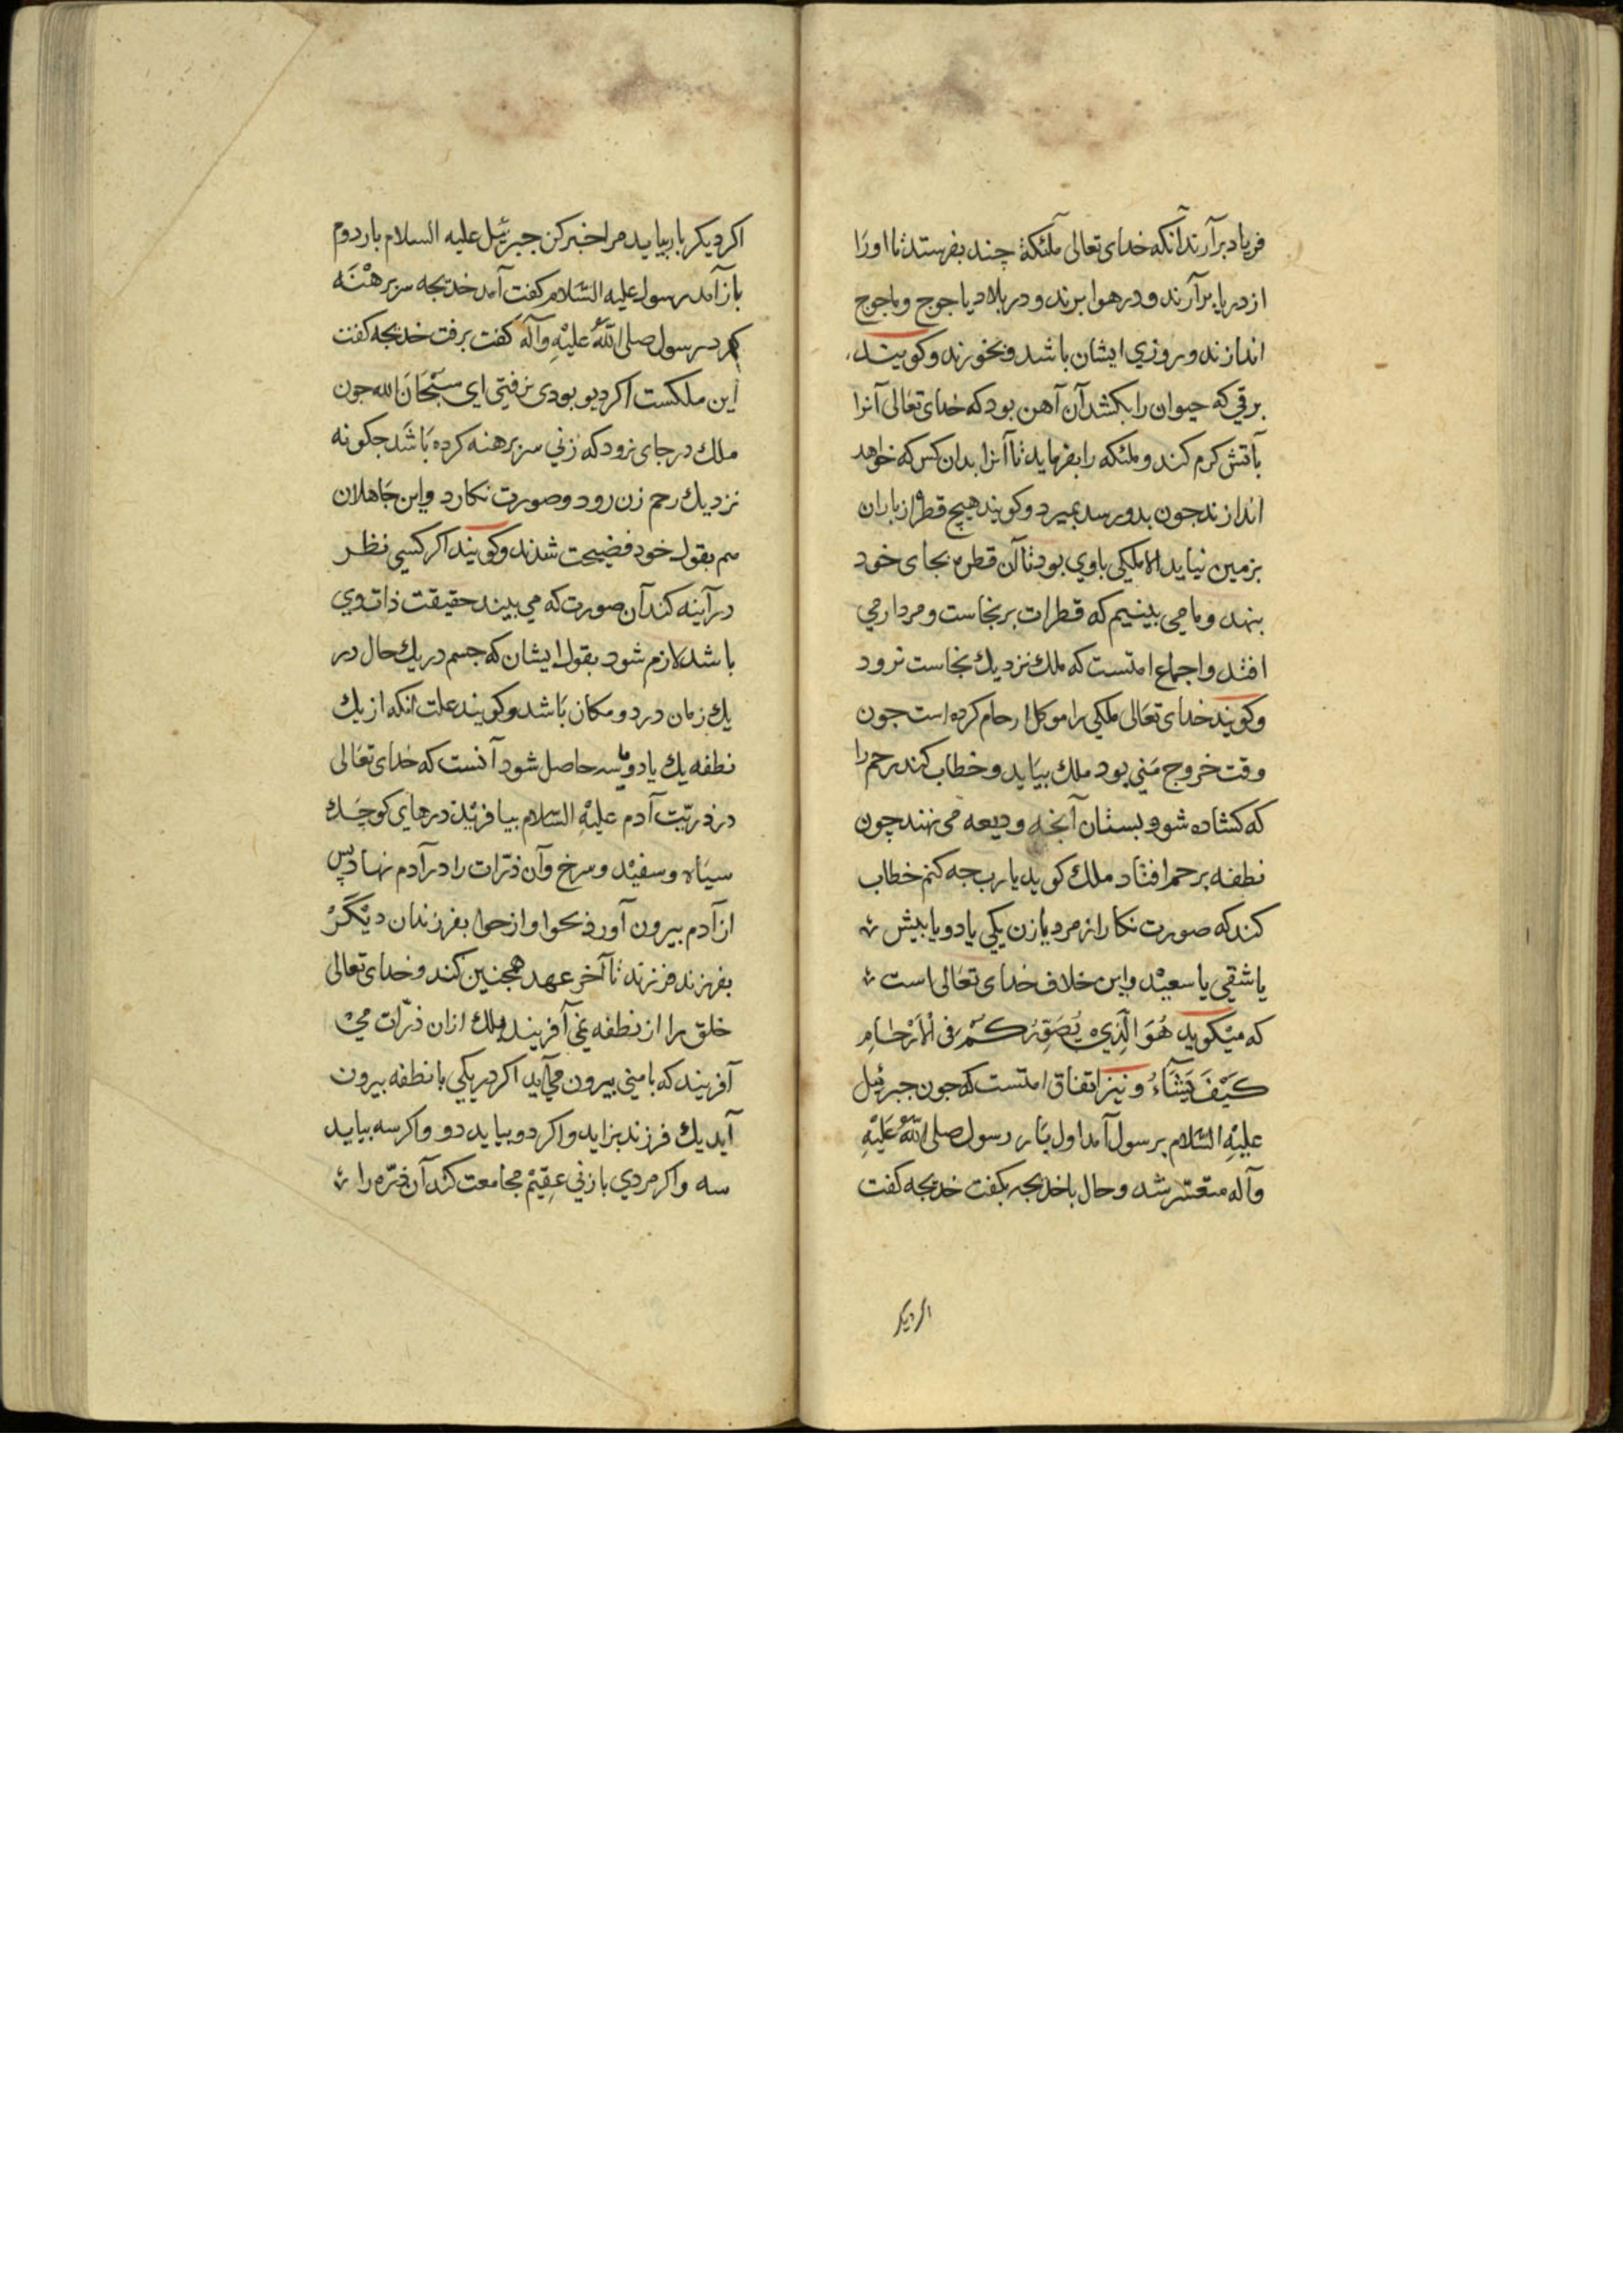 فریاد برآرند آنکه خدای تعالی ملئکهٔ چند بفرستد تا اورا
از دریا برآرند و در هوا برند و در بلاد یاجوج و ماجوج
اندازند و روزی ایشان باشد و بخورند و کویند
برقی که حیوان را بکشد آن آهن بود که خدای تعالی آنرا
بآتش کرم کند و ملئکه را بفرماید تا آنرا بدان کس که خواهد
اندازند جون بدو رسد بمیرد و کویند هیچ قطرهٔ از باران
بزمین نیاید الا ملکی باوی بود تا آن قطره بجای خود
بنهد و ما می بینیم که قطرات بر نجاست و مردار می
افتد و اجماع امتست که ملك نزدیك نجاست نرود
و کویند خدای تعالی ملکی را موکل ارحام کرده است جون
وقت خروج منی بود ملك بیاید و خطاب کند رحم را
که کشاده شو و بستان آنچه ودیعه می نهند چون
نطفه برحم افتاد ملك کوید یارب چه کنم خطاب
کند که صورت نکار از مرد یا زن یکی یا دو یا بیش
یا شقی یا سعید و این خلاف خدای تعالی است
که میکوید هُوَ الَّذِي يُصَوِّرُكُمْ فِی الْأَرْحَامِ
كَيْفَ يَشَآءُ و نیز اتفاق امتست که جون جبرئیل
علیه السّلام برسول آمد اول بار رسول صلی اللّٰه علیه
وآله متغیّر شد و حال با خدیجه بکفت خدیجه کفت
اکر دیکر
اکر دیکر بار بیاید مرا خبر کن جبرئیل علیه السلام بار دوم
باز آمد رسول علیه السّلام کفت آمد خدیجه سر برهنه
کرد رسول صلی اللّٰه علیه وآله کفت برفت خدیجه کفت
این ملکست اکر دیو بودی نرفتی ای سبحان الله جون
ملك در جای نرود که زنی سر برهنه کرده باشد جکونه
نزدیك رحم زن رود و صورت نکارد و این جاهلان
هم بقول خود فضیحت شدند و کویند اکر کسی نظر
در آینه کند آن صورت که می بیند حقیقت ذات وی
باشد لازم شود بقول ایشان که جسم در یك حال در
یك زمان در دو مکان باشد و کویند علت آنکه از یك
نطفه یك یا دو یا سه حاصل شود آنست که خدای تعالی
در ذریّت آدم علیه السّلام بیافرید ذرهای کوچك
سیاه و سفید و سرخ و آن ذرّات را در آدم نهاد پس
از آدم بیرون آورد بحوا و از حوا بفرزندان دیگر
بفرزند فرزند تا آخر عهد همجنین کند و خدای تعالی
خلق را از نطفه نمی آفریند ملك ازان ذرّات می
آفریند که با منی بیرون می آید اکر ذریکی با نطفه بیرون
آید یك فرزند بزاید و اکر دو بیاید دو و اکر سه بیاید
سه و اکر مردی با زنی عقیم مجامعت کند آن ذرّه را